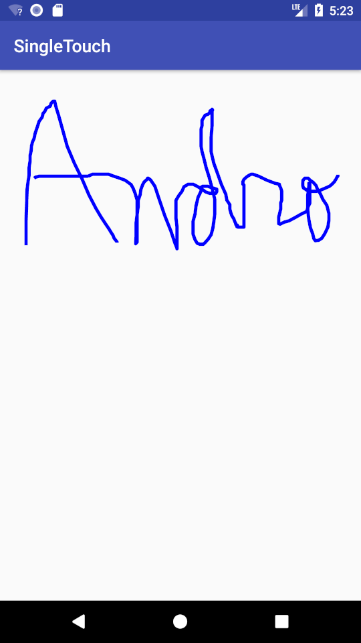 5:23
SingleTouch
Andro